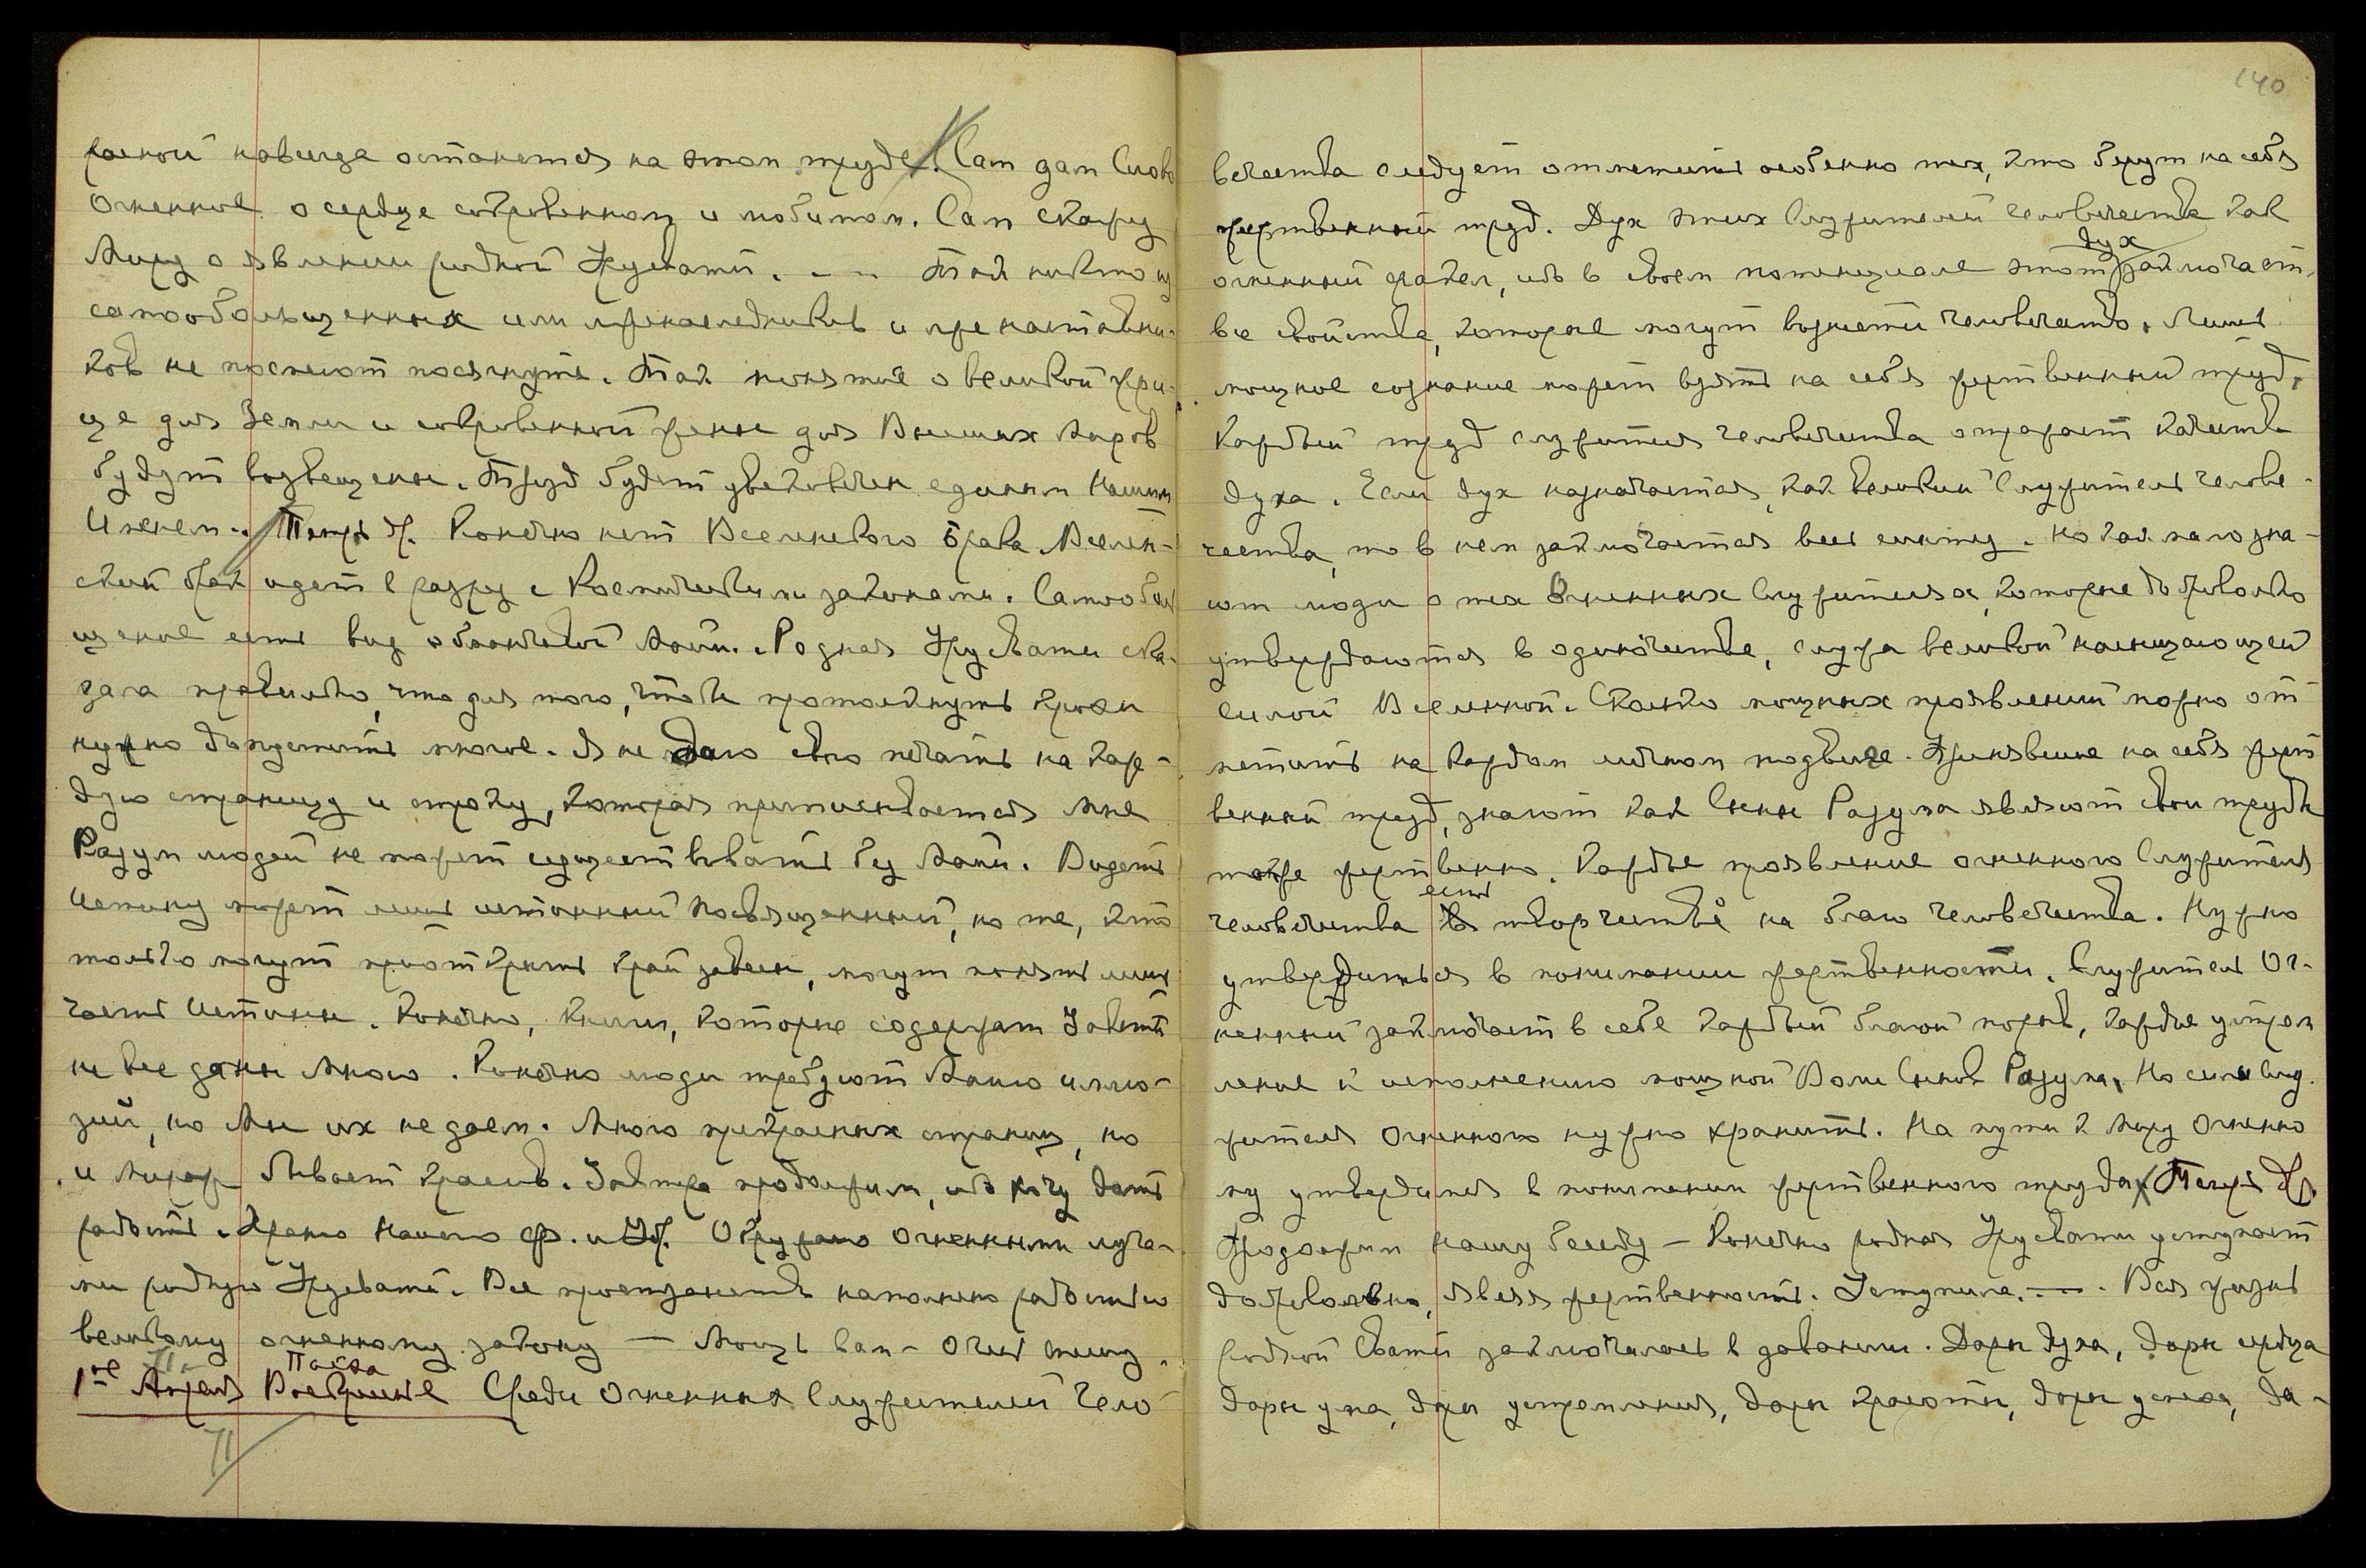 ранной навсегда останется на этом труде. Сам дам Слово
Огненное о сердце сокровенном и любимом. Сам скажу
Миру о явлении родной Урусвати. — Так никто из
самообольщенных или предателей и
ков не посмеют посягнуть. Так понятие о великой
це для Земли и сокровенной жены для Высших Миров
будут возвещены. Труд будет увековечен единым Нашим
Именем. Теперь др. Конечно нет Вселенского брака. Вселен-
ский брак идет в разрез с Космическими законами. Самооболь
щение есть вид оболочкой Майи. Родная Урусвати ска-
зала правильно, что для того, чтобы протолкнуть крохи
нужно допустить многое. Я не даю свою печать на каж-
дую страницу и строку, которая приписывается Мне
Разум людей не может существовать без Майи. Видеть
Истину может лишь истинный посвященный, но те, кто
только могут приоткрыть край завесы, могут понять лишь
часть Истины. Конечно, книги, которые содержат Заветы
не все даны Мною. Конечно люди требуют Майю иллю-
зий, но Мы их не даем. Много прекрасных страниц, но
и мираж бывает красив. Завтра продолжим, ибо хочу дать
радость. Храню Нашего Ф. и Уд. Окружаю огненными луча-
ми родную Урусвати. Все пространство наполнено радостью
великому огненному закону — Мощь вам – Отец тишу.
1ое Апреля Пасха Воскресенье Среди Огненных Служителей Чело
71
140
вечества следует отметить особенно тех, кто берут на себя
жертвенный труд. Дух этих Служителей человечества как
огненный факел, ибо в своем потенциале этот дух заключает
все свойства, которые могут вознести человечество. Лишь
мощное сознание может взять на себя жертвенный труд.
Каждый труд служителя человечества отражает качества
духа. Если дух назначается, как великий Служитель челове-
чества, то в нем заключается весь синтез. Но как мало зна-
ют люди о тех Огненных Служителях, которые добровольно
утверждаются в одиночестве, служа великой насыщающей
силой Вселенной. Сколько мощных проявлений можно от
метить на каждом личном подвиге. Принявшие на себя жерт
венный труд, знают как Сыны Разума являют свои труды
также жертвенно. Каждое проявление огненного Служителя
человечества есть творчество на благо человечества. Нужно
утвердиться в понимании жертвенности. Служитель Ог-
ненный заключает в себе каждый благой порыв, каждое устрем
ление к исполнению мощной Воли Сынов Разума. Но силы Слу-
жителя Огненного нужно хранить. На пути к Миру Огненно
му утвердимся в понимании жертвенного труда. Теперь др.
Продолжим нашу беседу – Конечно родная Урусвати уступает
добровольно, являя жертвенность. Уступила. —. Вся жизнь
родной Свати заключилась в давании. Дары духа, дары сердца
дары ума, дары устремления, дары красоты, дары успеха, да-